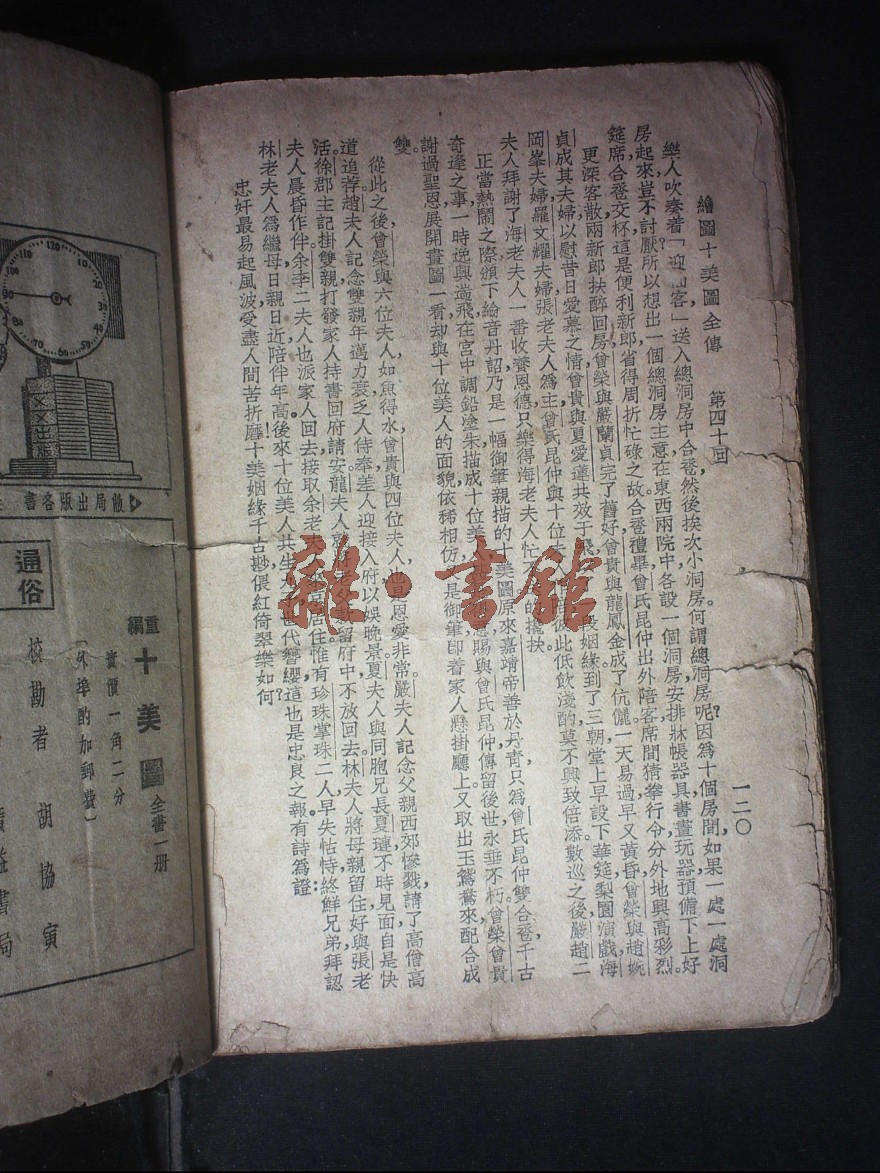 繪圖十美圖全傳　第四十回　一二〇
樂人吹奏着「迎仙客」送入總洞房中合巹然後挨次小洞房。何謂總洞房呢?因爲十個房間,如果一處一處洞
房起來豈不討厭?所以想出一個總洞房主意在東西兩院中各設一個洞房安排牀帳器具書畫玩器預備下上好
筵席合巹交杯這是便利新郎省得周折忙碌之故合巹禮畢曾氏昆仲出外陪客席間猜拳行令分外地興高彩烈。
更深客散兩新郎扶醉回房曾榮與嚴蘭貞完了舊好曾貴與龍鳳金成了伉儷一天易過早又黃昏曾榮與趙婉
貞成其夫婦以慰昔日愛慕之情曾貴與夏愛蓮共效于飛,姻緣到了三朝堂上早設下華筵梨園演戲海
岡峯夫婦羅文耀夫婦張老夫人爲主曾氏昆仲與十位夫彼此低飲淺酌莫不興致倍添數巡之後嚴趙二
夫人拜謝了海老夫人一番收養恩德只樂得海老夫人忙不的攙扶
正當熱鬧之際頒下綸音丹詔乃是一幅御筆親描的十美圖原來嘉靖帝善於丹青只爲曾氏昆仲雙合巹千古
奇逢之事一時逸興遄飛在宮中調鉛塗朱描成十位美人恩賜與曾氏昆仲傳留後世永垂不朽曾榮曾貴
謝過聖恩展開畫圖一看却與十位美人的面貌依稀相仿又是御筆卽着家人懸掛廳上又取出玉鴛鴦來配合成
雙。
從此之後曾榮與六位夫人,如魚得水曾貴與四位夫人,也是恩愛非常。嚴夫人記念父親西郊慘戮請了高僧高
道追荐趙夫人記念雙親年邁力衰乏人侍奉差人迎接入府以娛晚景夏夫人與同胞兄長夏璉不時見面自是快
活。徐郡主記掛雙親打發家人持書回府請安龍夫人留府中不放回去林夫人將母親留住好與張老
夫人晨昏作伴。余李二夫人也派家人回去接取余老夫人居住惟有珍珠掌珠二人早失怙恃終鮮兄弟拜認
林老夫人爲繼母日親日近陪伴年高。後來十位美人共生世代簪纓這也是忠良之報有詩爲證:
忠奸最易起風波受盡人間苦折磨!十美姻緣千古尠偎紅倚翠樂如何?
雜·書館
120
110
100
90
80
70
60
50
敝局出版各書
通俗
重編十美圖全書一册
實價一角二分
(外埠酌加郵費)
校勘者　胡協寅
廣益書局